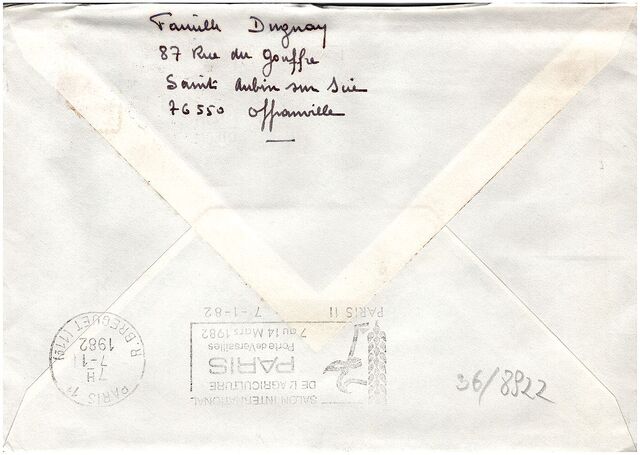 Famille Duguay
87 Rue du Gouffre
Saint Aubin sur Scie
76550 Offranville
PARIS 11 7-1-82
SALON INTERNATIONAL
DE L'AGRICULTURE
PARIS
Porte de Versailles
7 au 14 Mars 1982
PARIS 11
7H
7-1
1982
R. BREGUET (11E)
36/8922